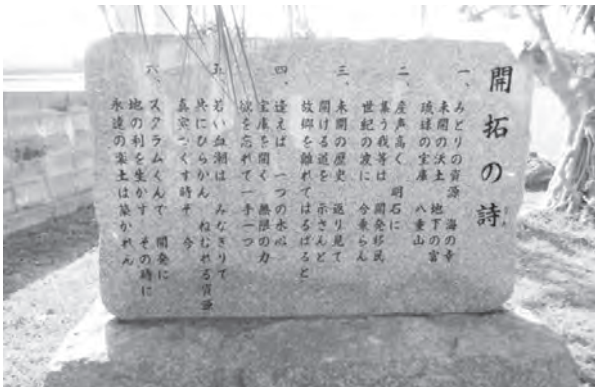 開拓の詩
うた
一、みどりの資源 海の幸
未開の沃土 地下の富
琉球の宝庫 八重山
二、産声高く 明石に
集う我等は 開発移民
世紀の波に 今乗らん
三、未開の歴史 返り見て
開ける道を 示さんと
故郷を離れてはるばると
四、逢えば 一つの水心
宝庫を開く 無限の力
欲を忘れて一手一つ
五、若い血潮は みなぎりて
共にひらかん ねむれる資源
真実つくす時ぞ 今
六、スクラムくんで 開発に
地の利を生かす その時に
永遠の楽土は築かれん